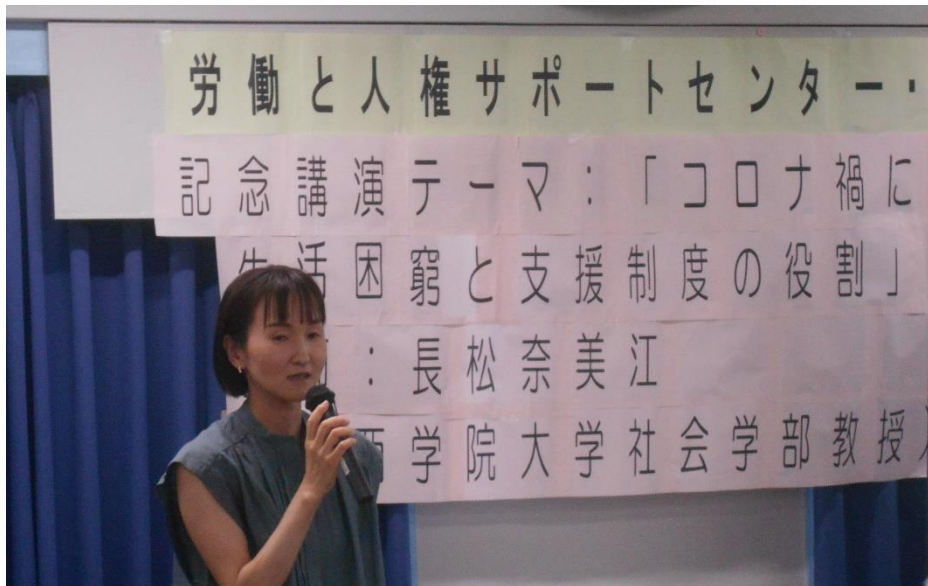 労働と人権サポートセンター・
記念講演テーマ：「コロナ禍に
生活困窮と支援制度の役割」
：長松奈美江
学院大学社会学部教授）